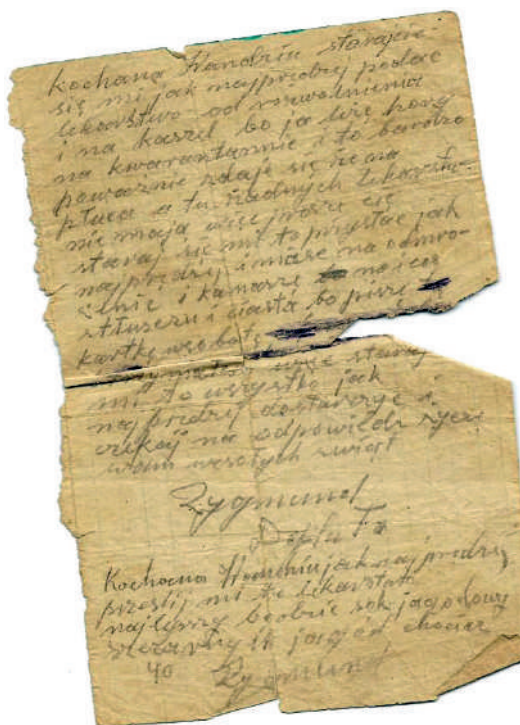 kochana Handziu starajcie
się mi jak najprędzej podac
lekarstwo od rozwolnienia
i na kaszel bo ja leżę hory
na kwarantannie i to bardzo
poważnie zdaje się że na
płuca a tu żadnych lekarstw
nie mają więc proszę cię
staraj się mi to przysłać jak
najprędzej i maśc na odmro-
żenie i kamasze no i coś
tłuszczu i ciasta bo piszę tę
kartkę w sobotę
więc staraj
mi to wszystko jak
najprędzej dostarczyć i
czekaj na odpowiedz życzę
wam wesołych świąt
Zygmund
Kochana jak najprędzej
prześlij mi te lekarstwo
najlepszy boobrie sok jagodowy
jagód chociaż
40 Zygmund